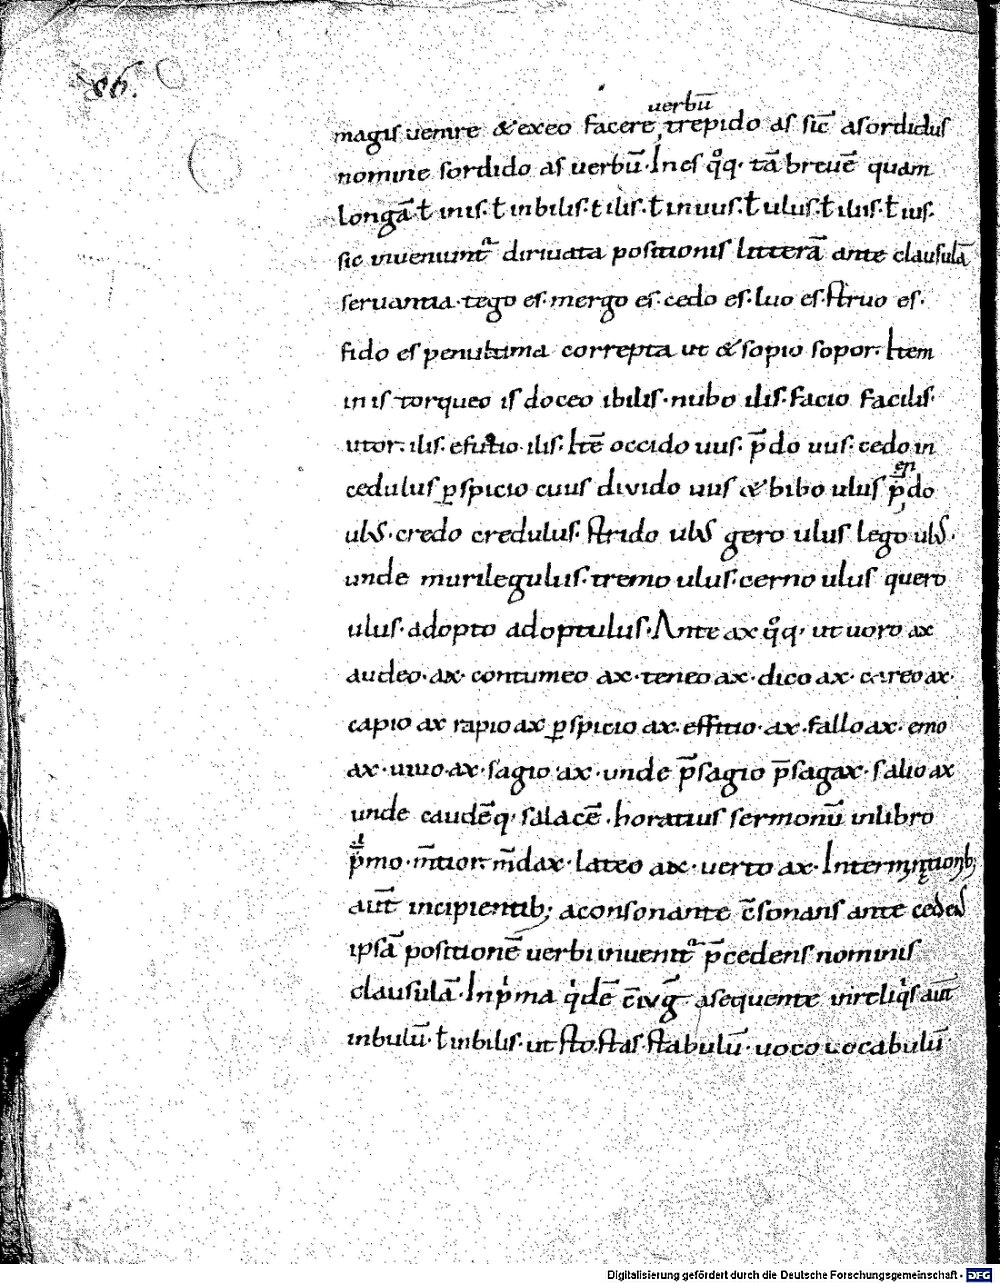 86.
uerbū
magis uenire & exeo facere trepido as sic̄ asordidus
nomine sordido as uerbū. In es q̊q. tā breuē quam
longā. t̄ inis. t̄ in bilis. t ilis. t̄ in uus. t̄ ulus. t̄ ilis. t̄ ius.
sic inveniunt̃ diriuata positionis litterā ante clausulā
seruantia. tego es. mergo es. cedo es. luo es. struo es.
fido es penultima correpta ut & sopio sopor. Item
in is torqueo is doceo ibilis. nubo ilis. facio facilis.
utor. ilis. efutio. ilis. Itē occido uus. p̄do uus. cedo in
ep
cedulus ꝑspicio cuus divido uus & bibo ulus p̄do
ulus. credo credulus. strido ulus gero ulus lego ulus.
unde murilegulus. tremo ulus. cerno ulus quero
ulus. adopto adoptulus. Ante ax q̊q. ut uoro ax
audeo. ax. contumeo ax. teneo ax. dico ax. careo ax.
capio ax rapio ax ꝑspicio ax. efficio. ax. fallo ax. emo
ax. uiuo. ax. sagio ax. unde p̄sagio p̄sagax. salio ax
unde caudēq. salacē. horatius sermonū inlibro
p̄mo. m̄tior. m̄dax. lateo ax. uerto ax. In
aut̄ incipientib; aconsonante c̄sonans ante
ipsā positionē uerbi inuenit̃ p̄cedens nominis
clausulā. In p̍ma q̍dē c̄iuḡ asequente inreliq̍s aut̄
inbulū. t̄ inbilis. ut sto. stas. stabulū. uoco uocabulū
Digitalisierung gefördert durch die Deutsche Forschungsgemeinschaft - DFG